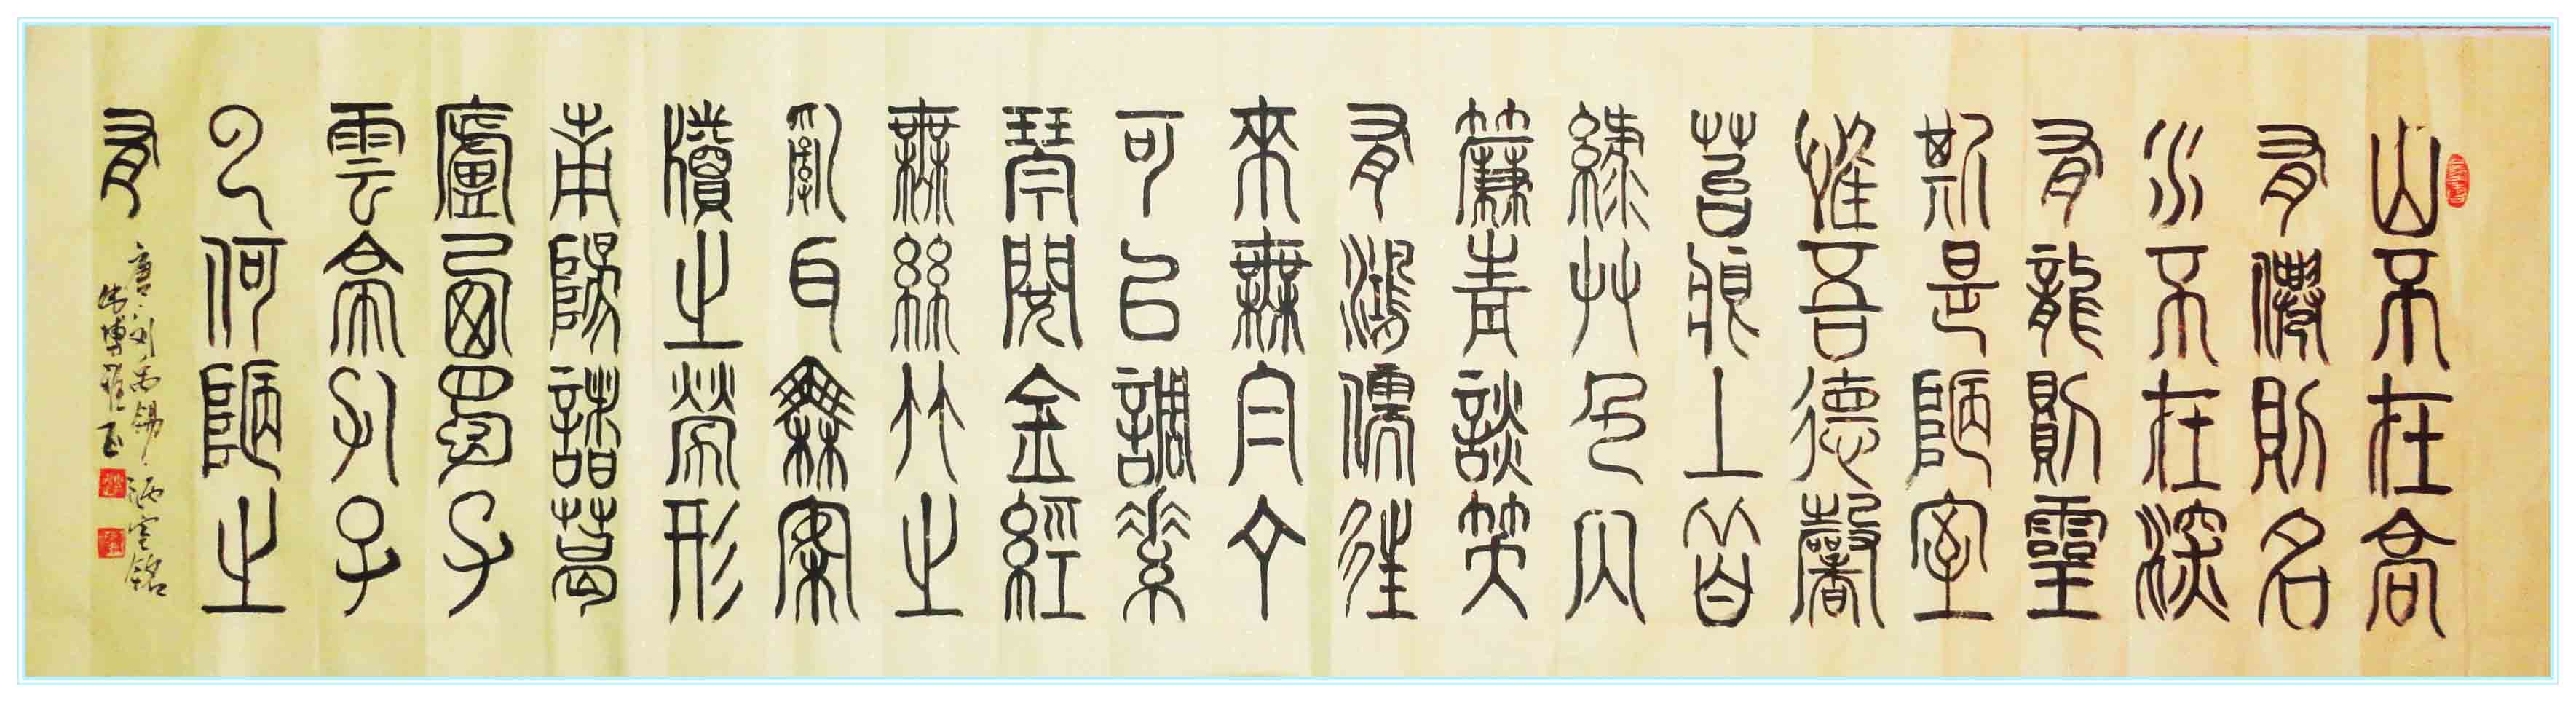 山不在高
有僊則名
水不在深
有龍則靈
斯是陋室
惟吾德馨
苔痕上皆
綠艸色入
簾青談笑
有鴻儒往
來無白丁
可以調素
琴閱金經
無絲竹之
亂耳無案
牘之勞形
南陽諸葛
廬西蜀子
雲亭孔子
曰何陋之
有
唐·刘禹锡·陋室铭